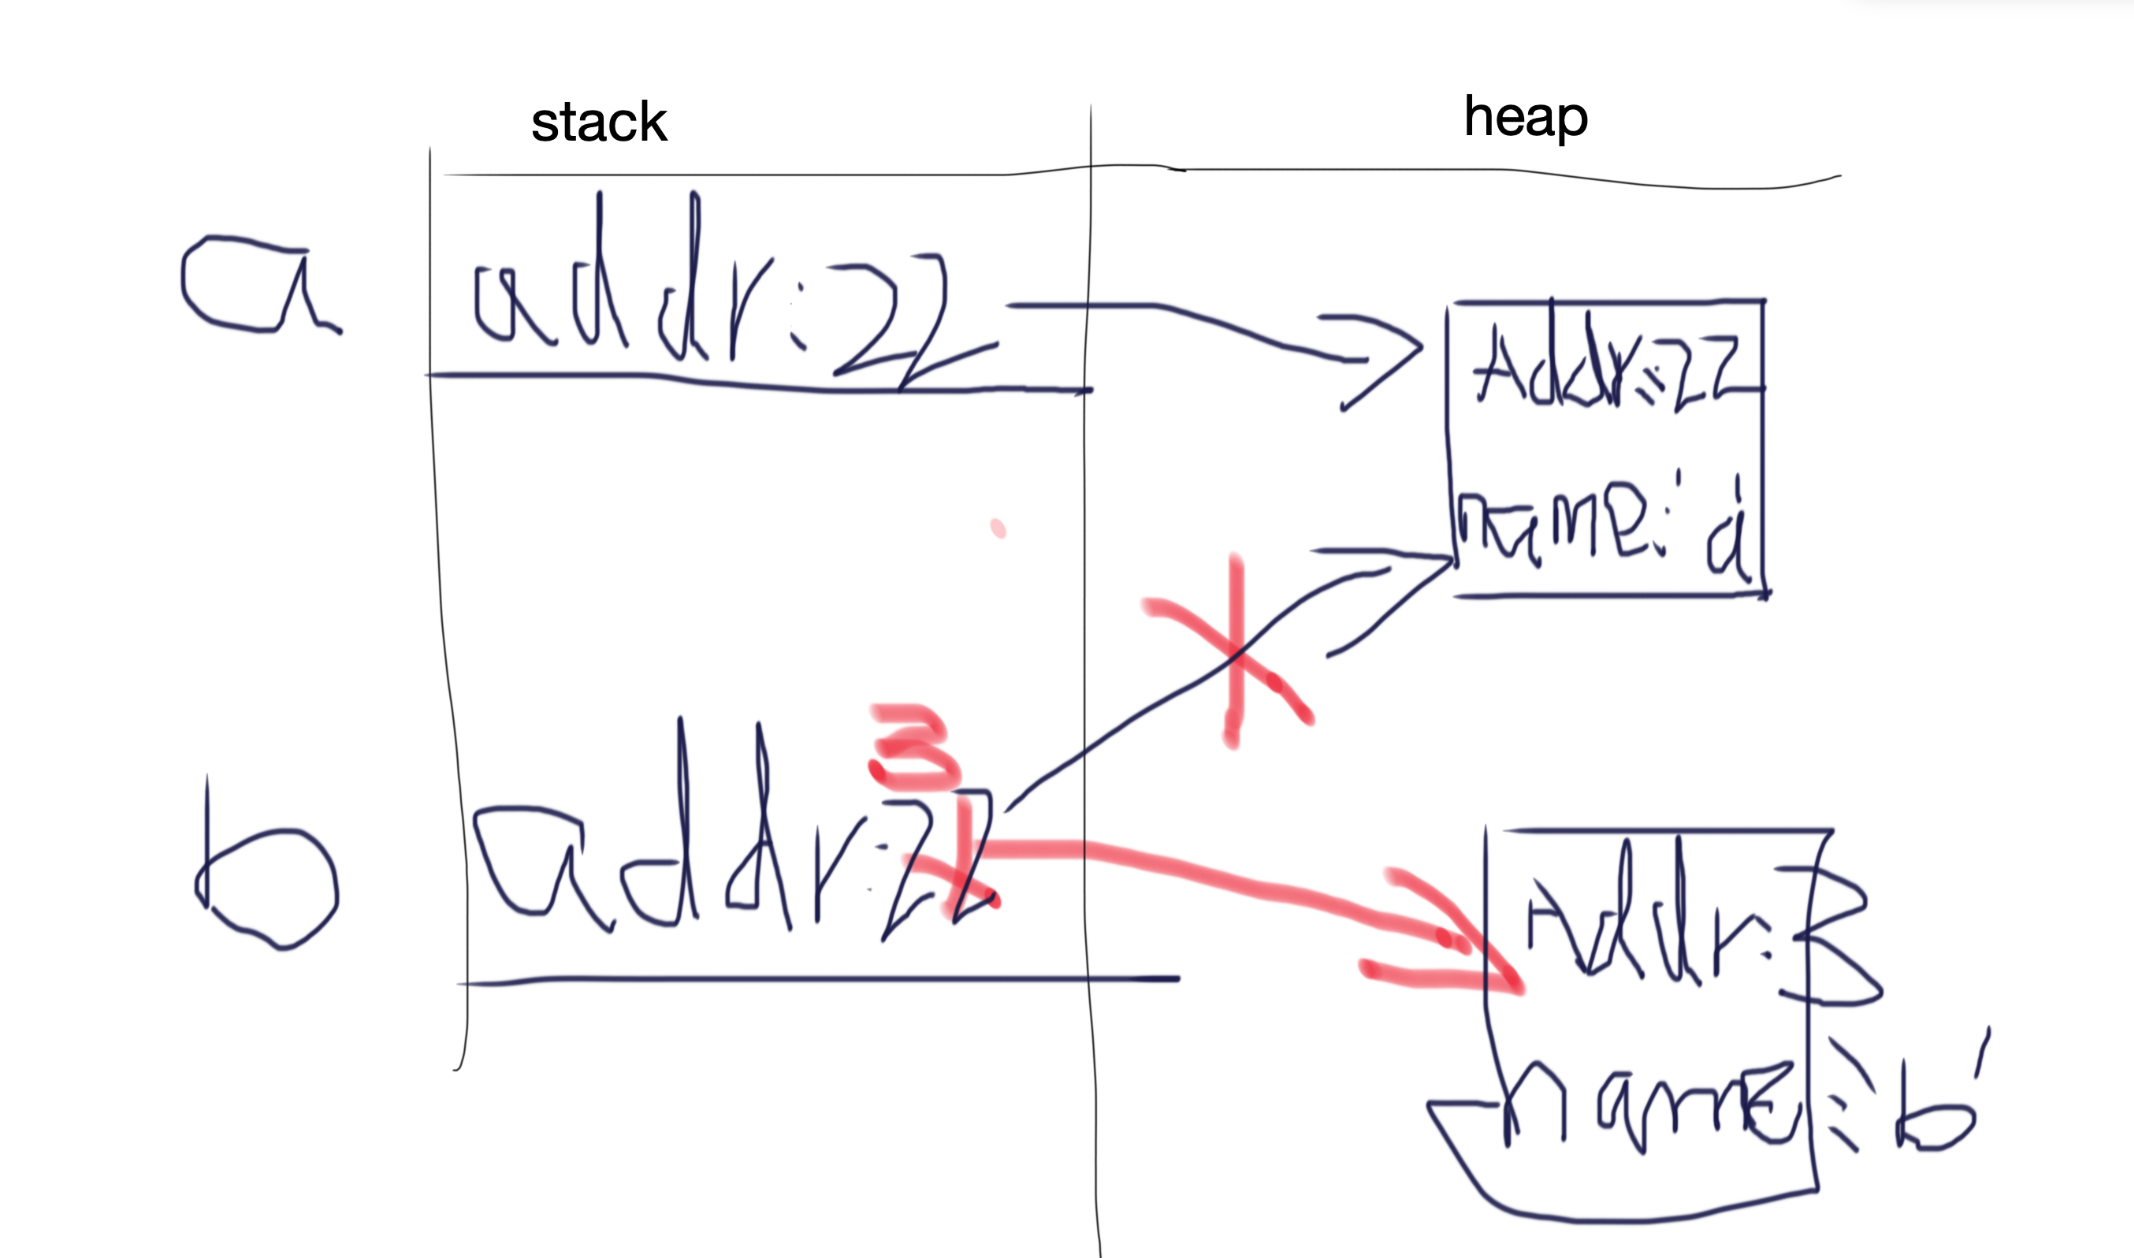 stack heap
a addr:22
Addr:22
name:'a
3
b addr:22
Addr:3
name:b'